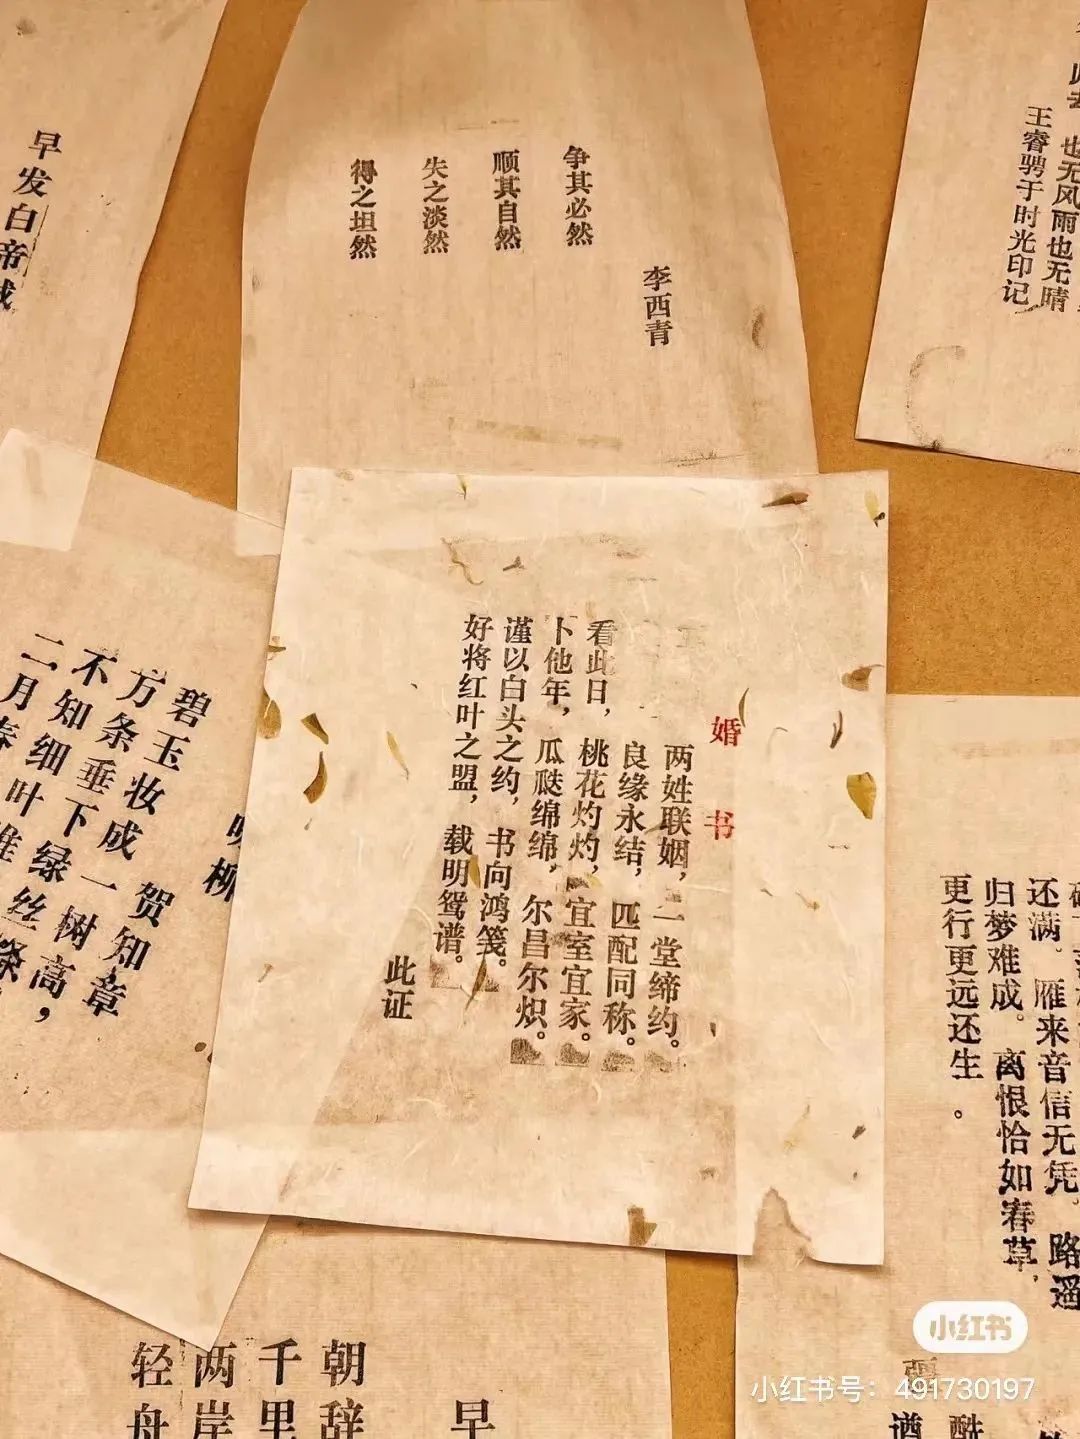 早发白帝城
李西青
争其必然
顺其自然
失之淡然
得之坦然
也无风雨也无晴
王睿骋于时光印记
婚书
两姓联姻，一堂缔约。
良缘永结，匹配同称。
看此日，桃花灼灼，宜室宜家。
卜他年，瓜瓞绵绵，尔昌尔炽。
谨以白头之约，书向鸿笺。
好将红叶之盟，载明鸳谱。
此证
柳
贺知章
碧玉妆成一树高，
万条垂下绿丝绦
不知细叶谁
二月春
还满。雁来音信无凭，路遥
归梦难成。离恨恰如春草，
更行更远还生。
早
朝辞
千里
两岸
轻舟
小红书
小红书号：491730197